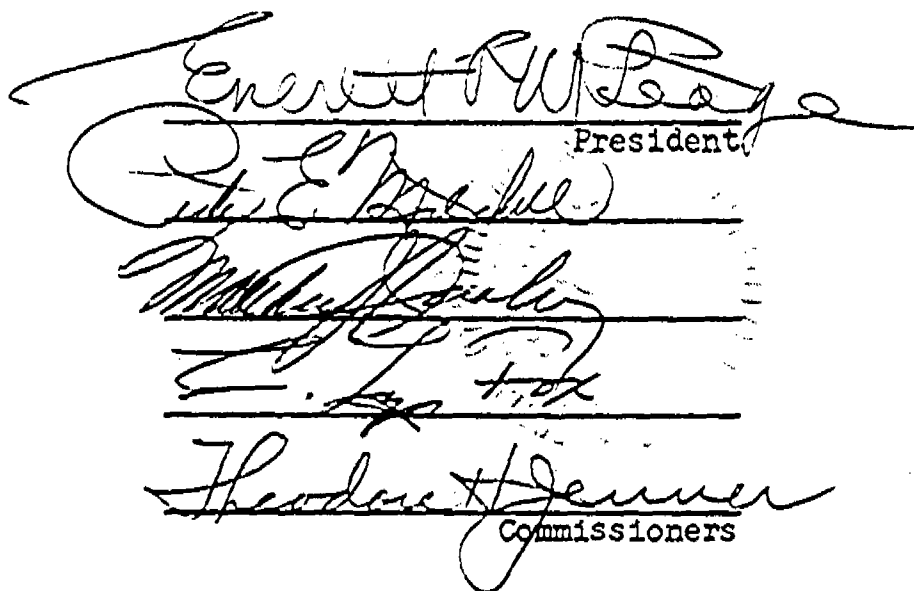 Everett C. McKeage
President
Peter E. Mitchell
C. Lyn Fox
Theodore H. Jenner
Commissioners